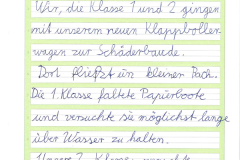 Wir, die Klasse 1 und 2 gingen
mit unserem neuen Klappboller-
wagen zur Schäderbaude.
Dort fließt ein kleiner Bach.
Die 1. Klasse faltete Papierboote
und versuchte sie möglichst lange
über Wasser zu halten.
Klasse